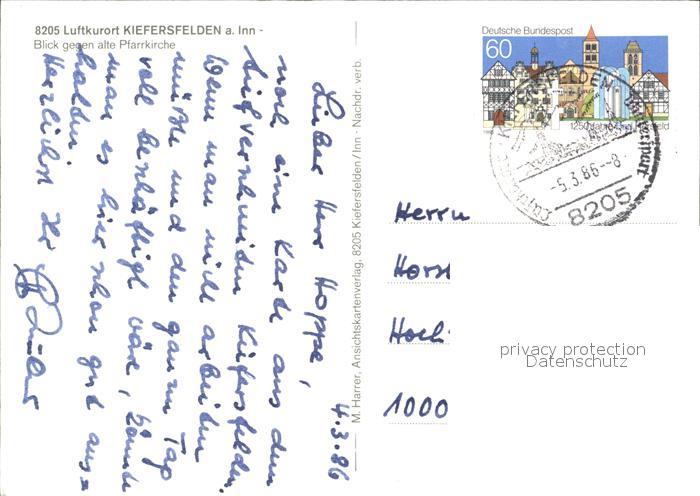 8205 Luftkurort KIEFERSFELDEN a. Inn -
Blick gegen alte Pfarrkirche
4.3.86
Lieber Herr Hoppe,
noch eine Karte aus dem
tief verschneiten Kiefersfelden.
Wenn man nicht arbeiten
müßte und den ganzen Tag
voll beschäftigt wäre, könnte
man es hier schon gut aus=
halten.
Herzlichst Ihr
M. Harrer, Ansichtskartenverlag, 8205 Kiefersfelden/Inn · Nachdr. verb.
Deutsche Bundespost
60
1250 Jahre
KIEFERSFELDEN
-5.3.86--8
8205
Herrn
Horst
Hoch
1000
privacy protection
Datenschutz